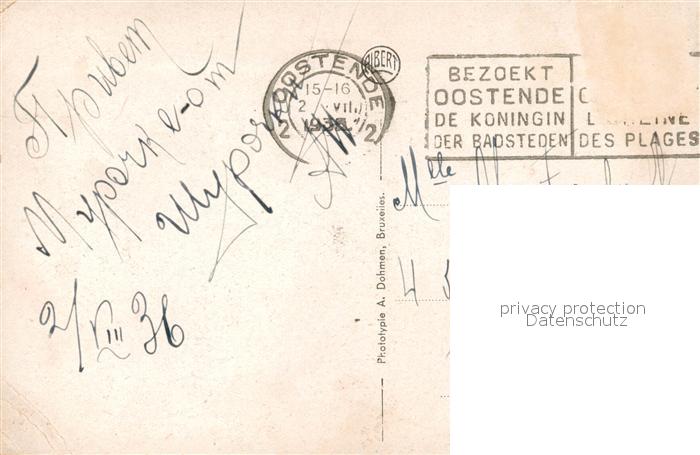 Привет
Мурочке от
Шурочки
2/VIII 36
OOSTENDE
15-16
2 VIII
1936
2 2
ALBERT
BEZOEKT
OOSTENDE
DE KONINGIN
DER BADSTEDEN
DES PLAGES
Mlle
Phototypie A. Dohmen, Bruxelles.
privacy protection
Datenschutz